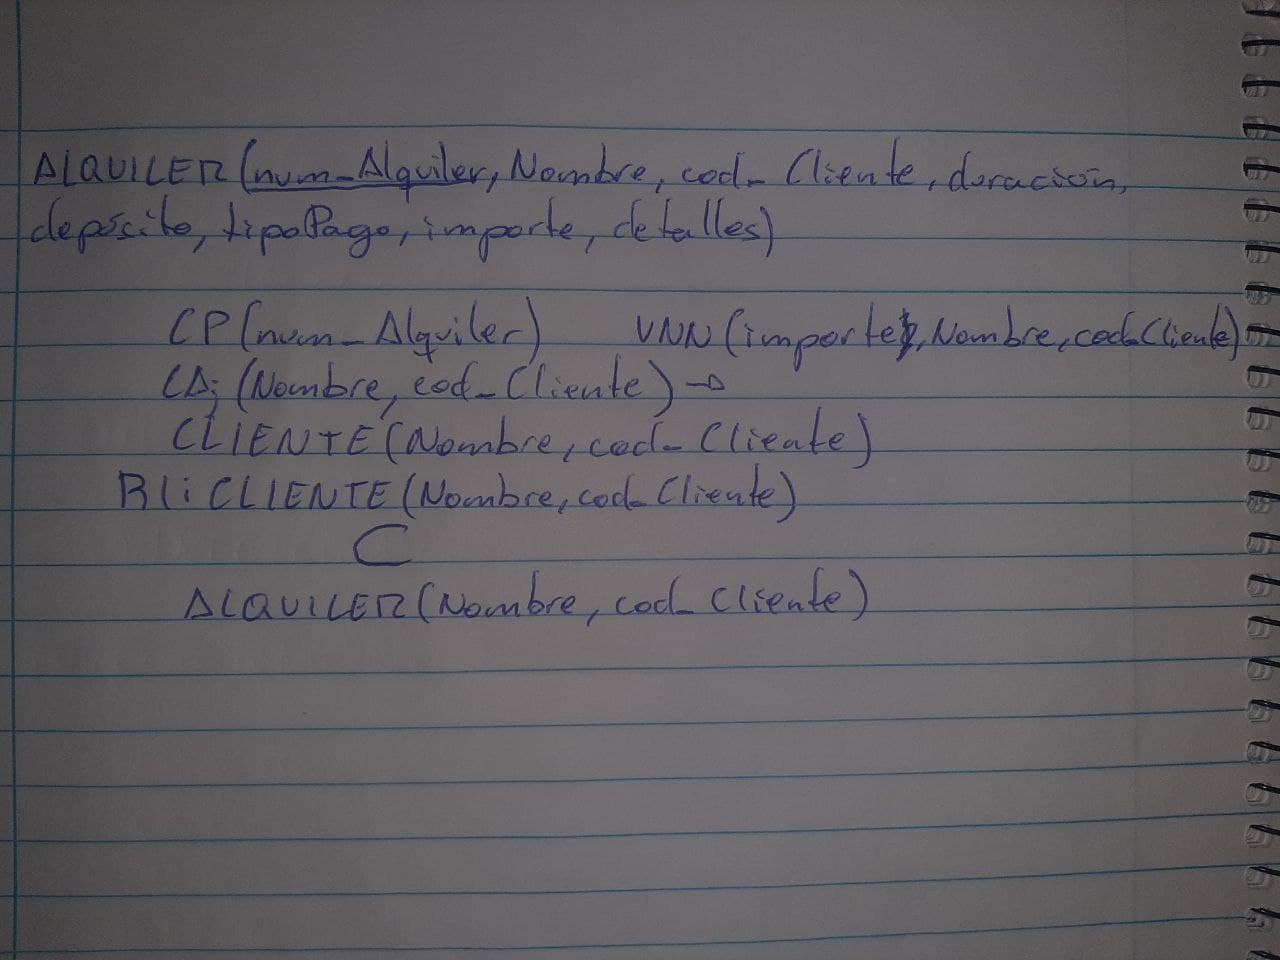 ALQUILER(num_Alquiler, Nombre, cod_Cliente, duración,
depósito, tipoPago, importe, detalles)
CP(num_Alquiler) VNN(importe, Nombre, cod_Cliente)
CAj(Nombre, cod_Cliente)→
CLIENTE(Nombre, cod_Cliente)
RIi CLIENTE(Nombre, cod_Cliente)
⊂
ALQUILER(Nombre, cod_Cliente)